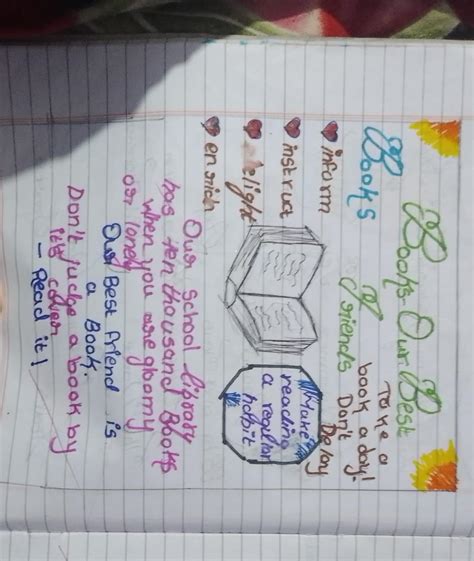 Books Our Best
Friends
Books
Take a
book a day!
Don't
Delay
inform
instruct
delight
enrich
Make
reading
a regular
habit
Our school library
has ten thousand Books
when you are gloomy
or lonely
Our Best friend is
a Book.
Don't judge a book by
its cover
– Read it!